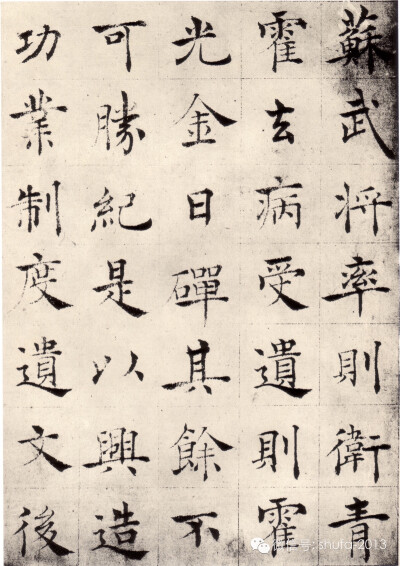 蘇武将率則衛青
霍去病受遺則霍
光金日磾其餘不
可勝紀是以興造
功業制度遺文後
微信号: shufa-2013